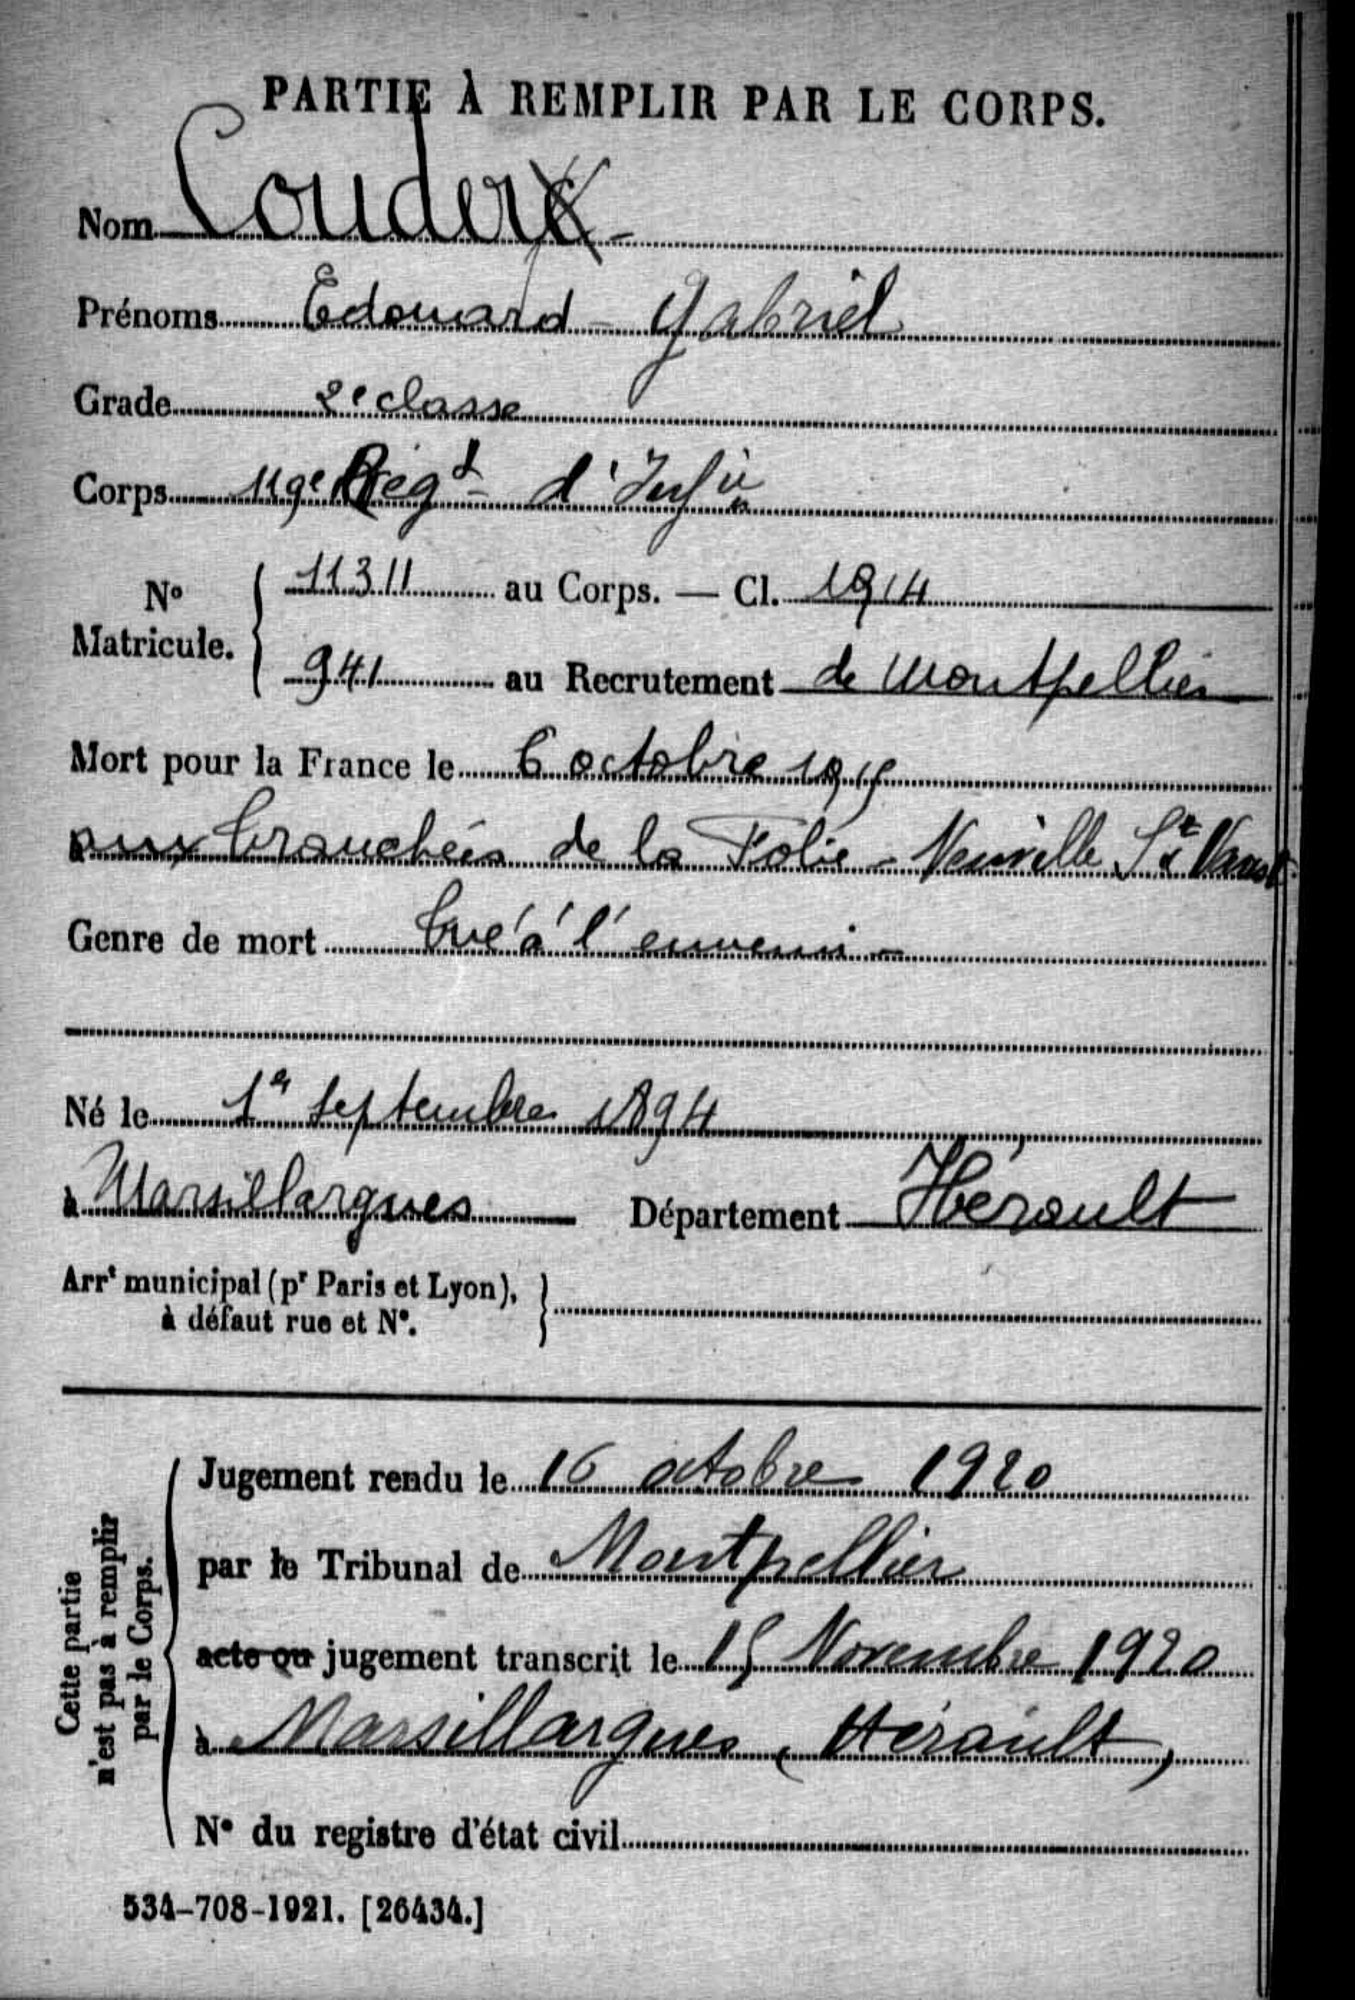 PARTIE À REMPLIR PAR LE CORPS.
Nom Couder
Prénoms Edouard - Gabriel
Grade 2e classe
Corps 119e Régt d'Infie
No Matricule. { 11311 au Corps. — Cl. 1914
941 au Recrutement de Montpellier
Mort pour la France le 6 octobre 1915
aux tranchées de la Folie - Neuville St Vaast
Genre de mort tué à l'ennemi -
Né le 1er septembre 1894
à Marsillargues Département Hérault
Arrt municipal (pr Paris et Lyon), }
à défaut rue et No.
Cette partie
n'est pas à remplir
par le Corps.
Jugement rendu le 16 octobre 1920
par le Tribunal de Montpellier
acte ou jugement transcrit le 15 Novembre 1920
à Marsillargues (Hérault)
No du registre d'état civil
534-708-1921. [26434.]